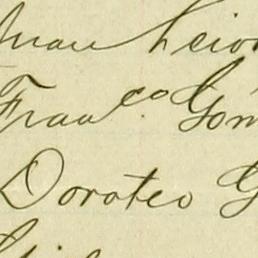 Juan Leion
Franco Gom
Doroteo G